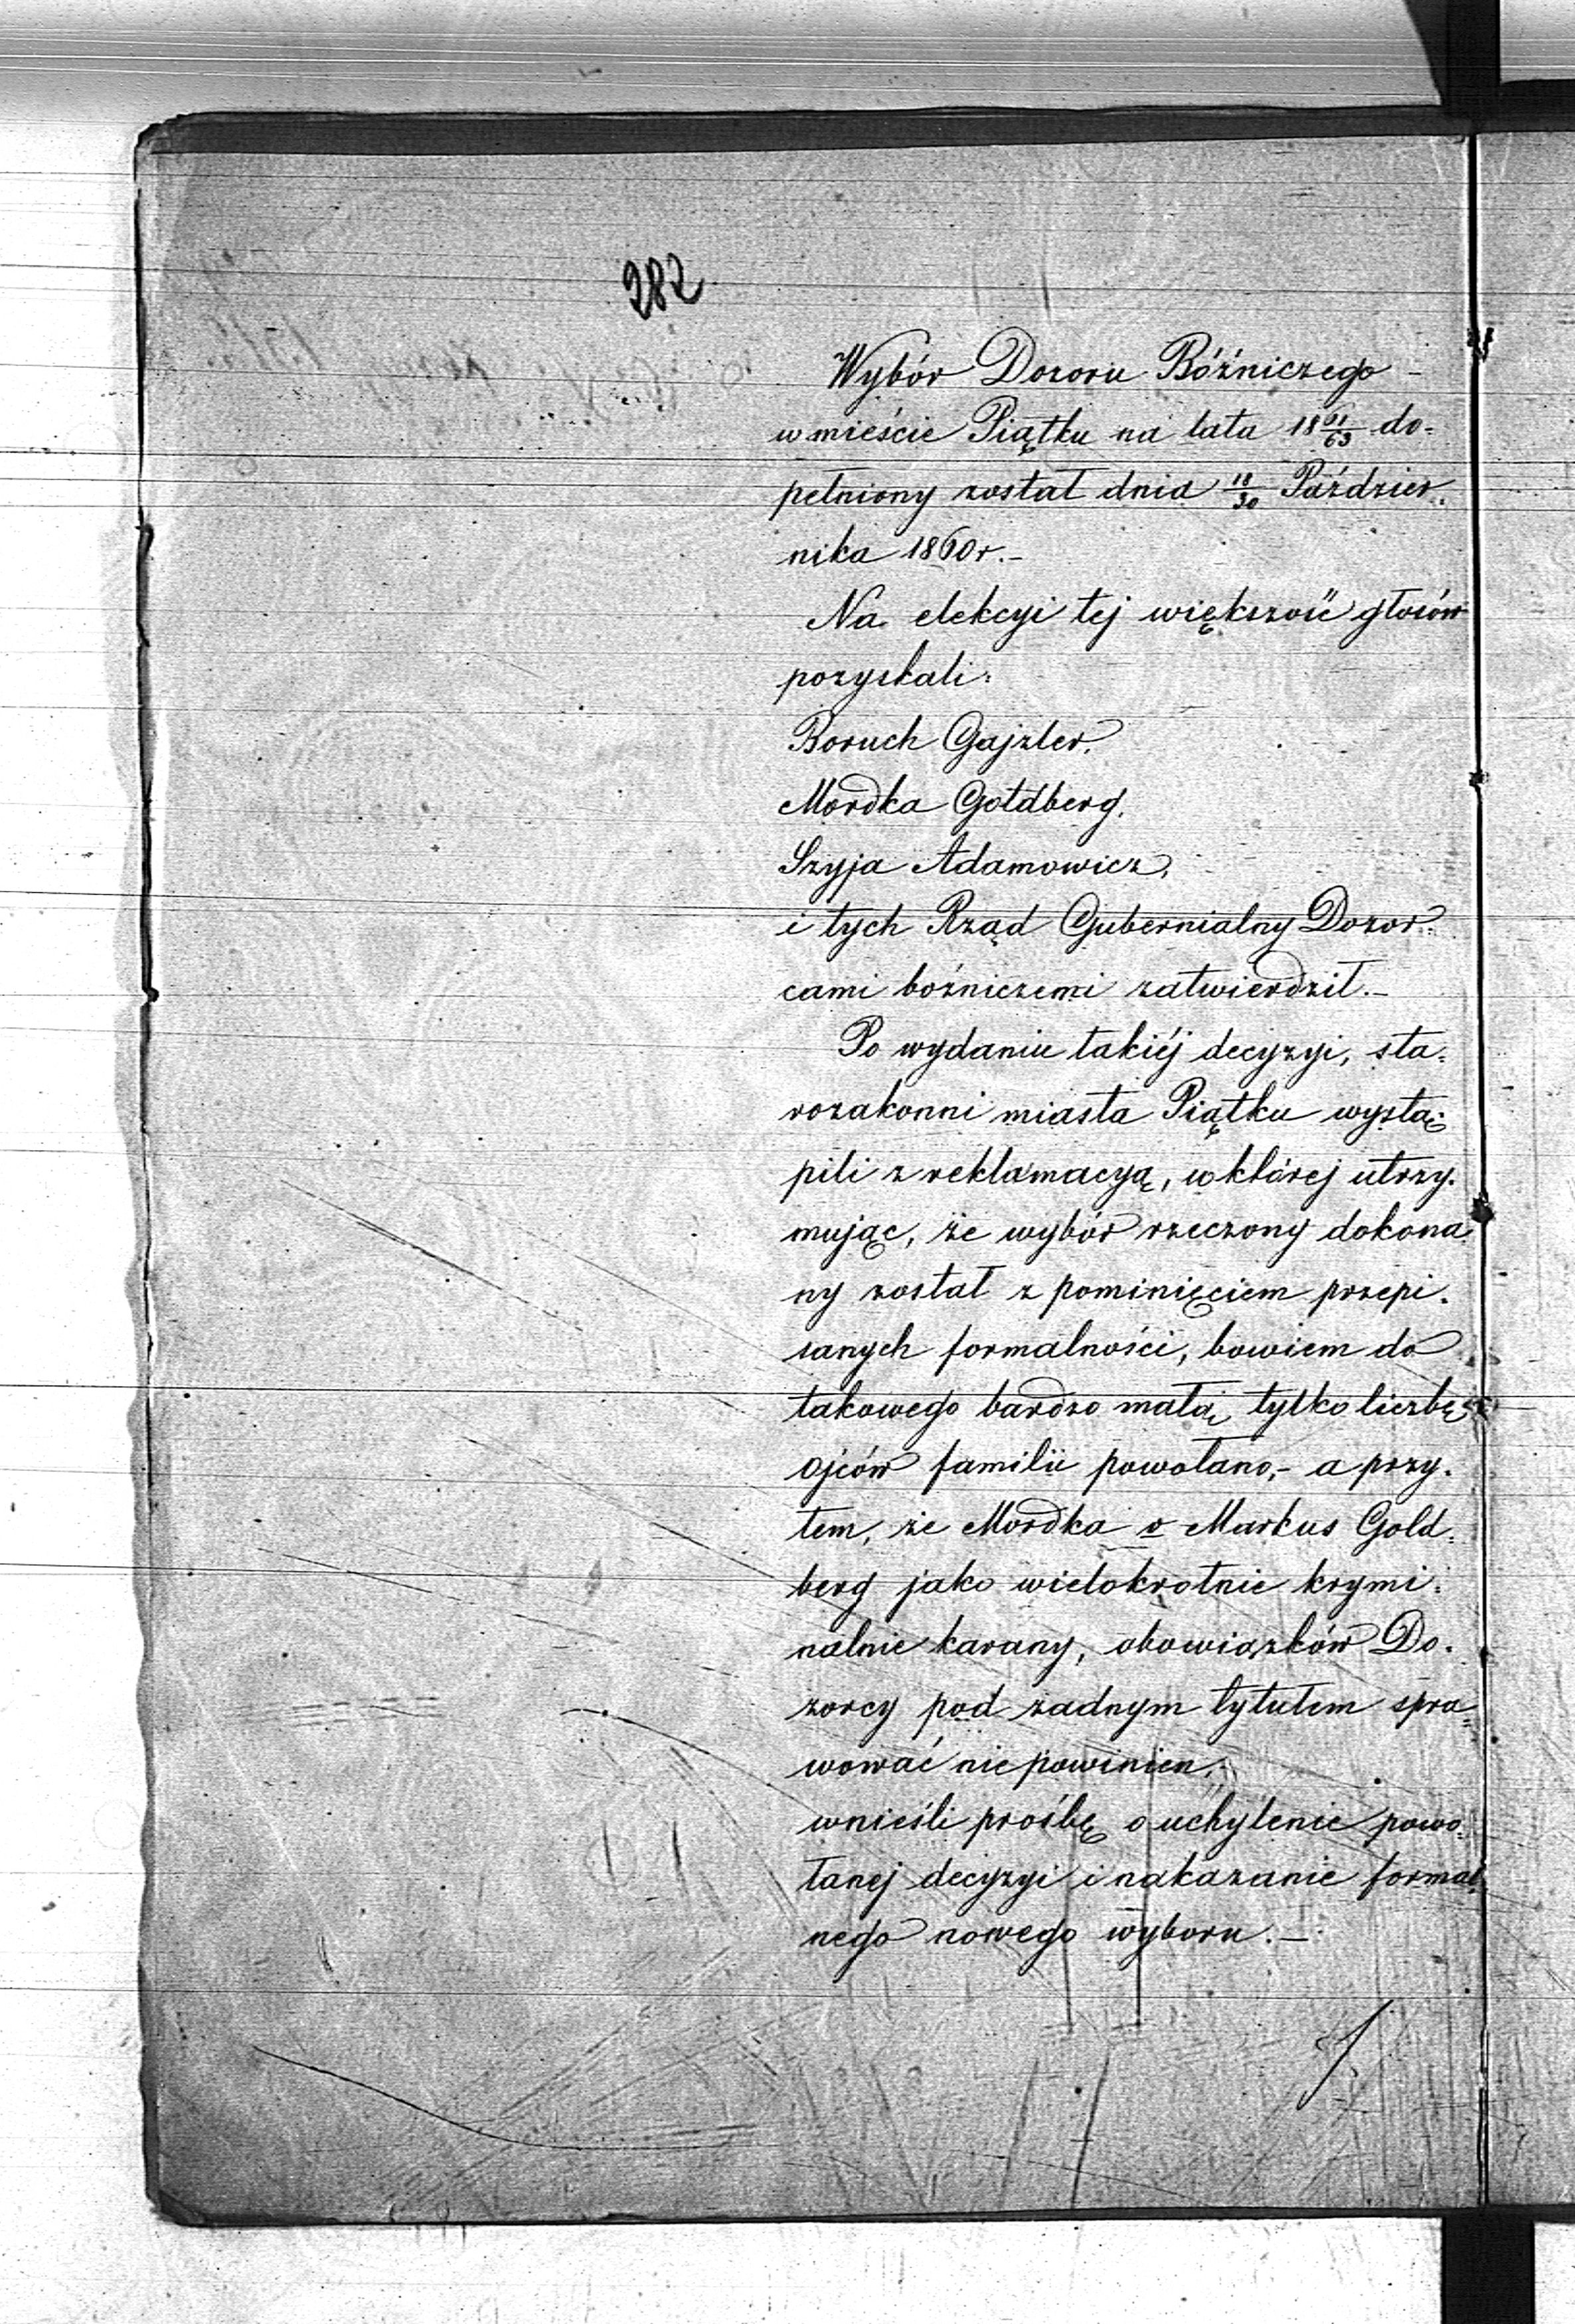 282
Wybór Dozoru Bóźniczego -
w mieście Piątku na lata 18 61/63 do=
pełniony został dnia 18/30 Paździer=
nika 1860 r.-
Na elekcyi tej większość głosów
pozyskali:
Boruch Gajzler,
Mordka Goldberg,
Szyja Adamowicz,
i tych Rząd Gubernialny Dozor=
cami bóźniczemi zatwierdził.-
Po wydaniu takiéj decyzyi, sta=
rozakonni miasta Piątku wystą=
pili z reklamacyą, w której utrzy=
mując, że wybór rzeczony dokona=
ny został z pominięciem przepi=
sanych formalności, bowiem do
takowego bardzo małą tylko liczbę
ojców familii powołano,- a przy=
tem, że Mordka v Markus Gold=
berg jako wielokrotnie krymi=
nalnie karany, obowiązków Do=
zorcy pod żadnym tytułem spra=
wować nie powinien,
wnieśli prośbę o uchylenie powo=
łanej decyzyi i nakazanie formal=
nego nowego wyboru.-